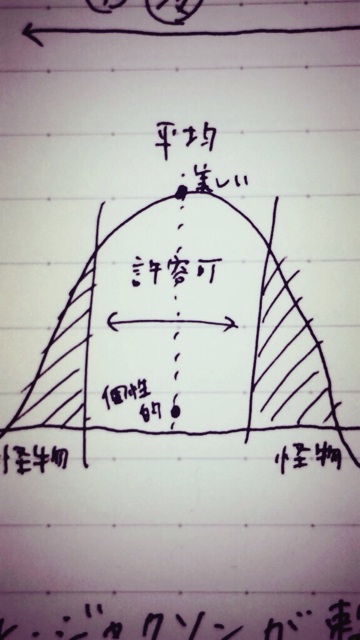 平均
美しい
許容可
個性
的
怪物
怪物
ジャクソンが